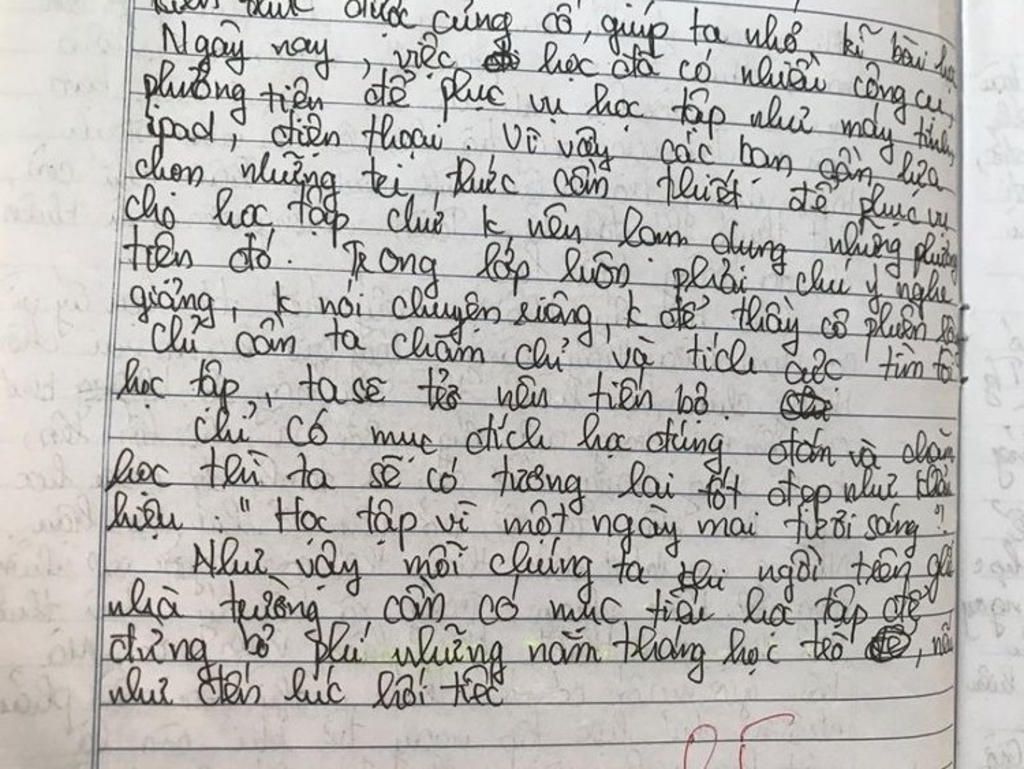 được củng cố, giúp ta nhớ kĩ bài học
Ngày nay, việc học đã có nhiều công cụ,
phương tiện để phục vụ học tập như máy tính
ipad, điện thoại Vì vậy các bạn cần lựa
chọn những tri thức cần thiết để phục vụ
cho học tập chứ k nên lạm dụng những phương
tiện đó. Trong lớp luôn phải chú ý nghe
giảng, k nói chuyện riêng, k để thầy cô phiền
Chỉ cần ta chăm chỉ và tích cực tìm tòi
học tập, ta sẽ trở nên tiến bộ
Chỉ có mục đích học đúng đắn và chăm
học thì ta sẽ có tương lai tốt đẹp như khẩu
hiệu "Học tập vì một ngày mai tươi sáng"
Như vậy mỗi chúng ta khi ngồi trên ghế
nhà trường cần có mục tiêu học tập để
đừng bỏ phí những năm tháng học trò,
như đến lúc hối tiếc